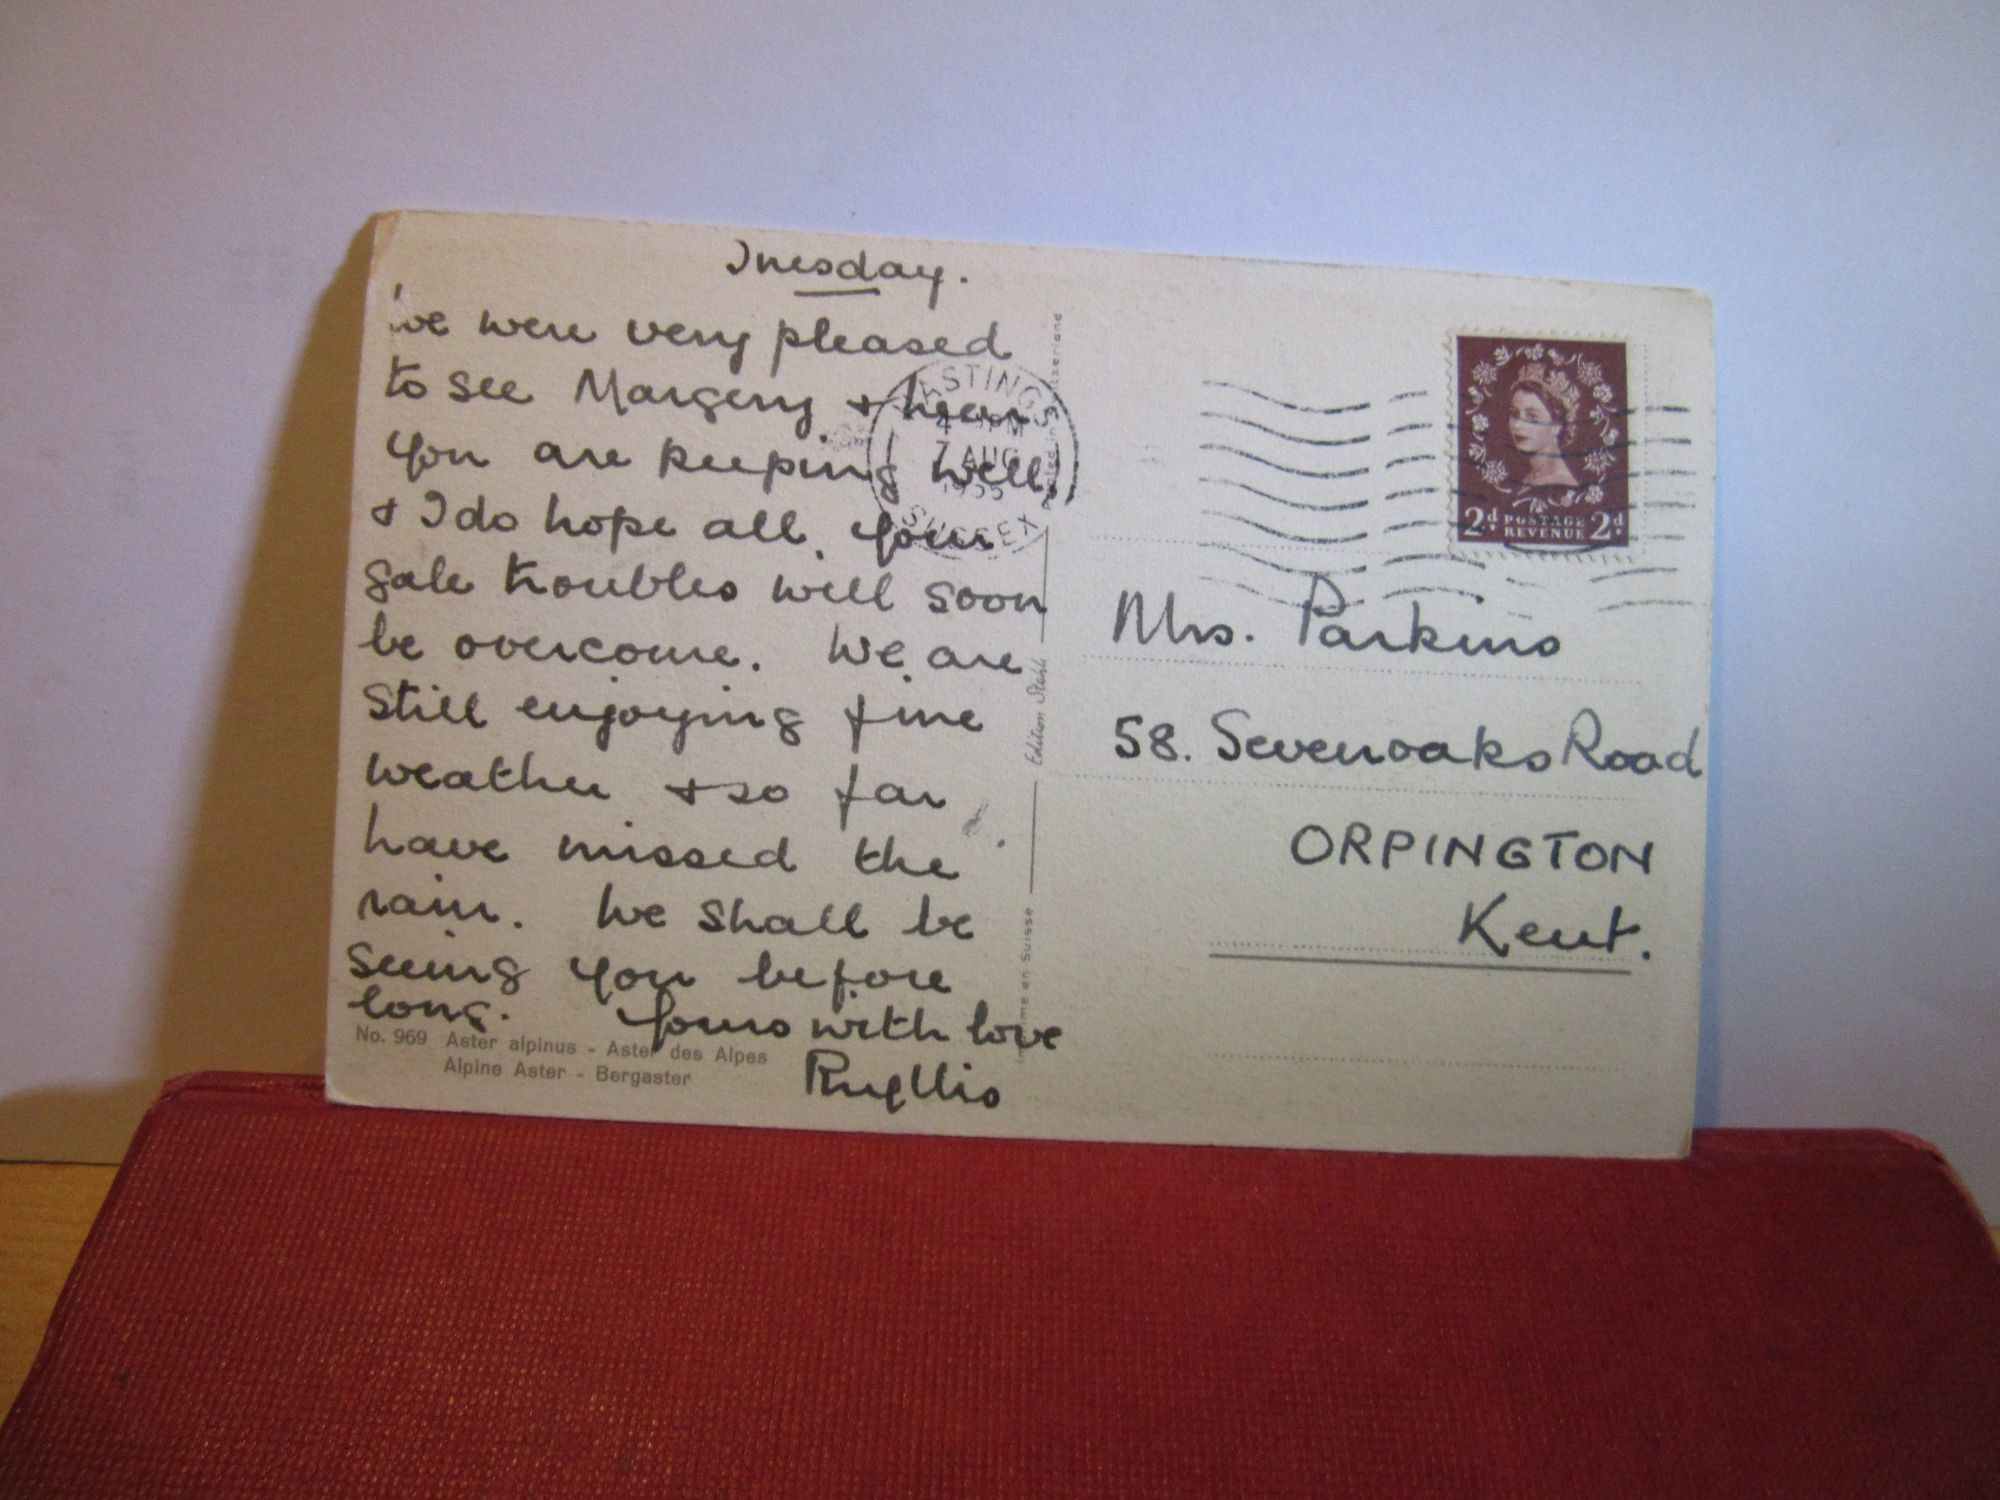 Tuesday.
We were very pleased
to see Margery & hear
you are keeping well,
& I do hope all your
gale troubles will soon
be overcome. We are
still enjoying fine
weather & so far
have missed the
rain. We shall be
seeing you before
long. Yours with love
Phyllis
No. 969 Aster alpinus - Aster des Alpes
Alpine Aster - Bergaster
HASTINGS
PM
7 AUG
SUSSEX
Printed in Switzerland
Edition Stehli
Imprimé en Suisse
2d. POSTAGE REVENUE 2d.
Mrs. Parkins
58. Sevenoaks Road
ORPINGTON
Kent.